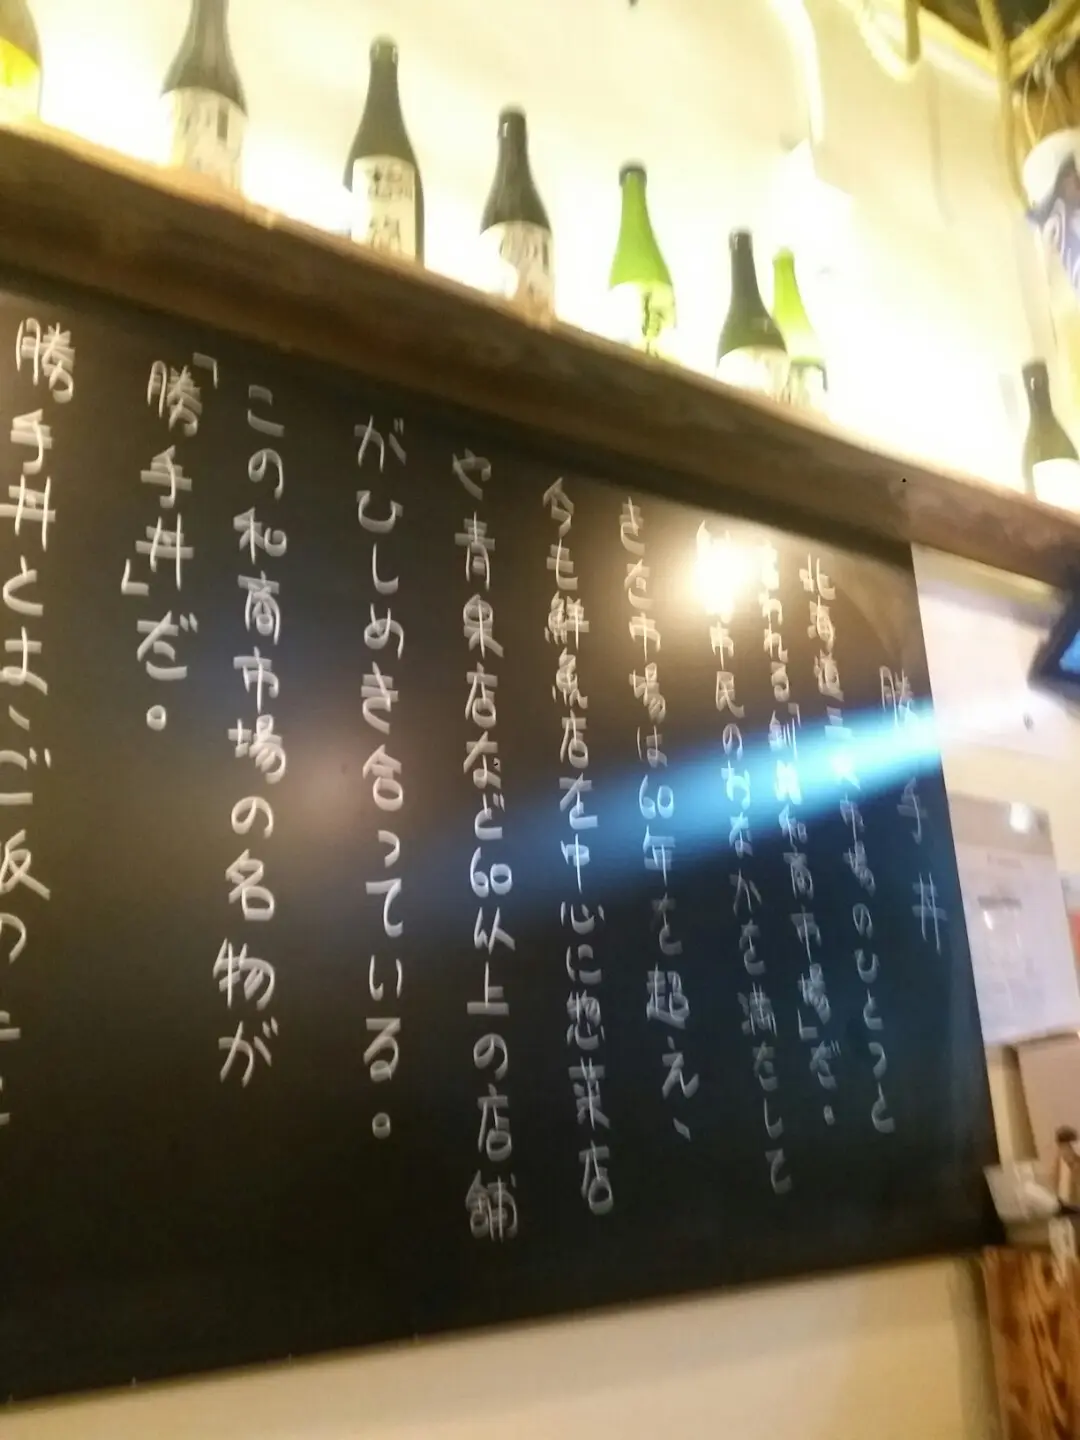 勝手丼
北海道三大市場のひとつと
言われる「釧路和商市場」だ。
市民のおなかを満たして
きた市場は60年を超え、
今も鮮魚店を中心に惣菜店
や青果店など60以上の店舗
がひしめき合っている。
この和商市場の名物が
「勝手丼」だ。
勝手丼とは、ご飯の